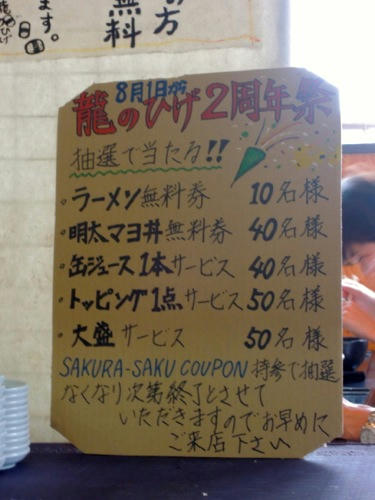 の方
無料
ます。
8月1日から
龍のひげ2周年祭
抽選で当たる!!
・ラーメン無料券 10名様
・明太マヨ丼無料券 40名様
・缶ジュース1本サービス 40名様
・トッピング1点サービス 50名様
・大盛サービス 50名様
SAKURA-SAKU COUPON 持参で抽選
なくなり次第終了とさせて
いただきますのでお早めに
ご来店下さい